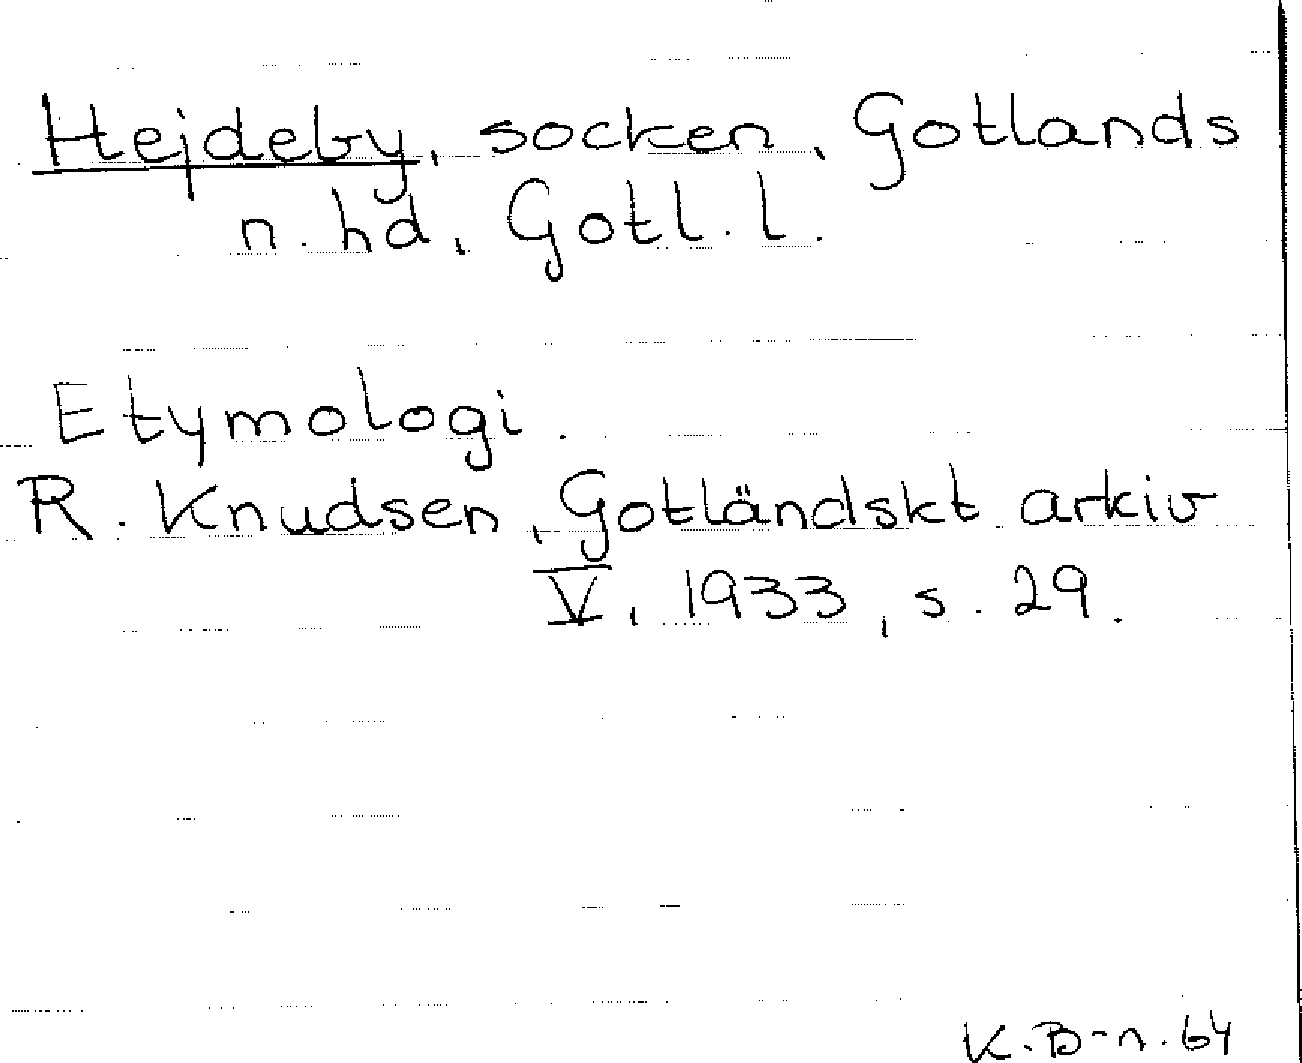 Hejdeby, socken, Gotlands
n. hd, Gotl. l.
Etymologi.
R. Knudsen, Gotländskt arkiv
V, 1933, s. 29.
K. B-n. 64